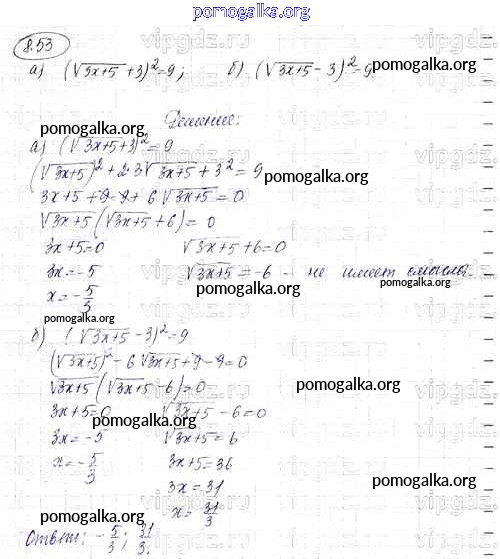 pomogalka.org
8.53
а) (√3x+5 +3)²=9; б) (√3x+5 - 3)²=9.
pomogalka.org
Решение:
pomogalka.org
а) (√3x+5+3)²=9
(√3x+5)²+2·3√3x+5+3²=9
pomogalka.org
3x+5+9-9+6√3x+5=0
√3x+5(√3x+5+6)=0
3x+5=0 √3x+5+6=0
3x=-5 √3x+5=-6 - не имеет смысла.
pomogalka.org
x=-5/3
pomogalka.org
б) (√3x+5-3)²=9
(√3x+5)²-6√3x+5+9-9=0
√3x+5(√3x+5-6)=0
pomogalka.org
3x+5=0 √3x+5-6=0
pomogalka.org
3x=-5 √3x+5=6
x=-5/3 3x+5=36
pomogalka.org
3x=31
x=31/3
pomogalka.org
Ответ: -5/3; 31/3.
pomogalka.org